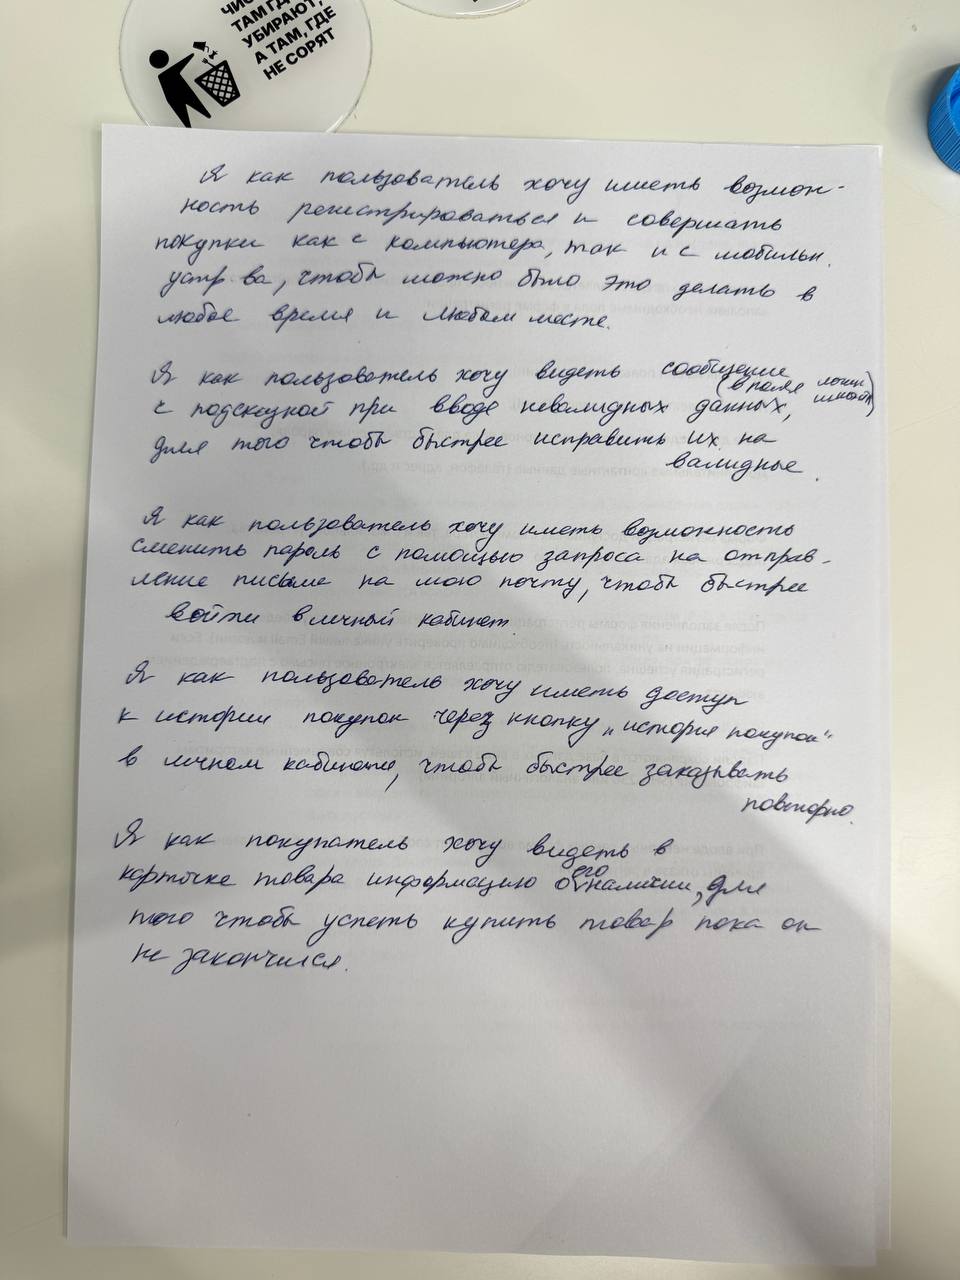 ЧИС
ТАМ ГД
УБИРАЮТ,
А ТАМ, ГДЕ
НЕ СОРЯТ
Я как пользователь хочу иметь возмож-
ность регистрироваться и совершать
покупки как с компьютера, так и с мобильн.
устр-ва, чтобы можно было это делать в
любое время и любом месте.
Я как пользователь хочу видеть сообщение
(в поля логин
с подсказкой при вводе невалидных данных,
для того чтобы быстрее исправить их на
валидные.
Я как пользователь хочу иметь возможность
сменить пароль с помощью запроса на отправ-
ление письма на мою почту, чтобы быстрее
войти в личный кабинет.
Я как пользователь хочу иметь доступ
к истории покупок через кнопку „история покупок“
в личном кабинете, чтобы быстрее заказывать
повторно.
Я как покупатель хочу видеть в
карточке товара информацию о его наличии, для
того чтобы успеть купить товар пока он
не закончился.